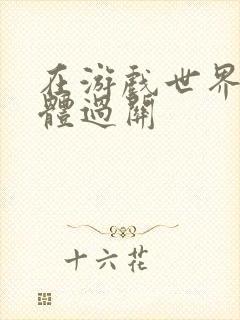 在游戏世界
體過關
十六花